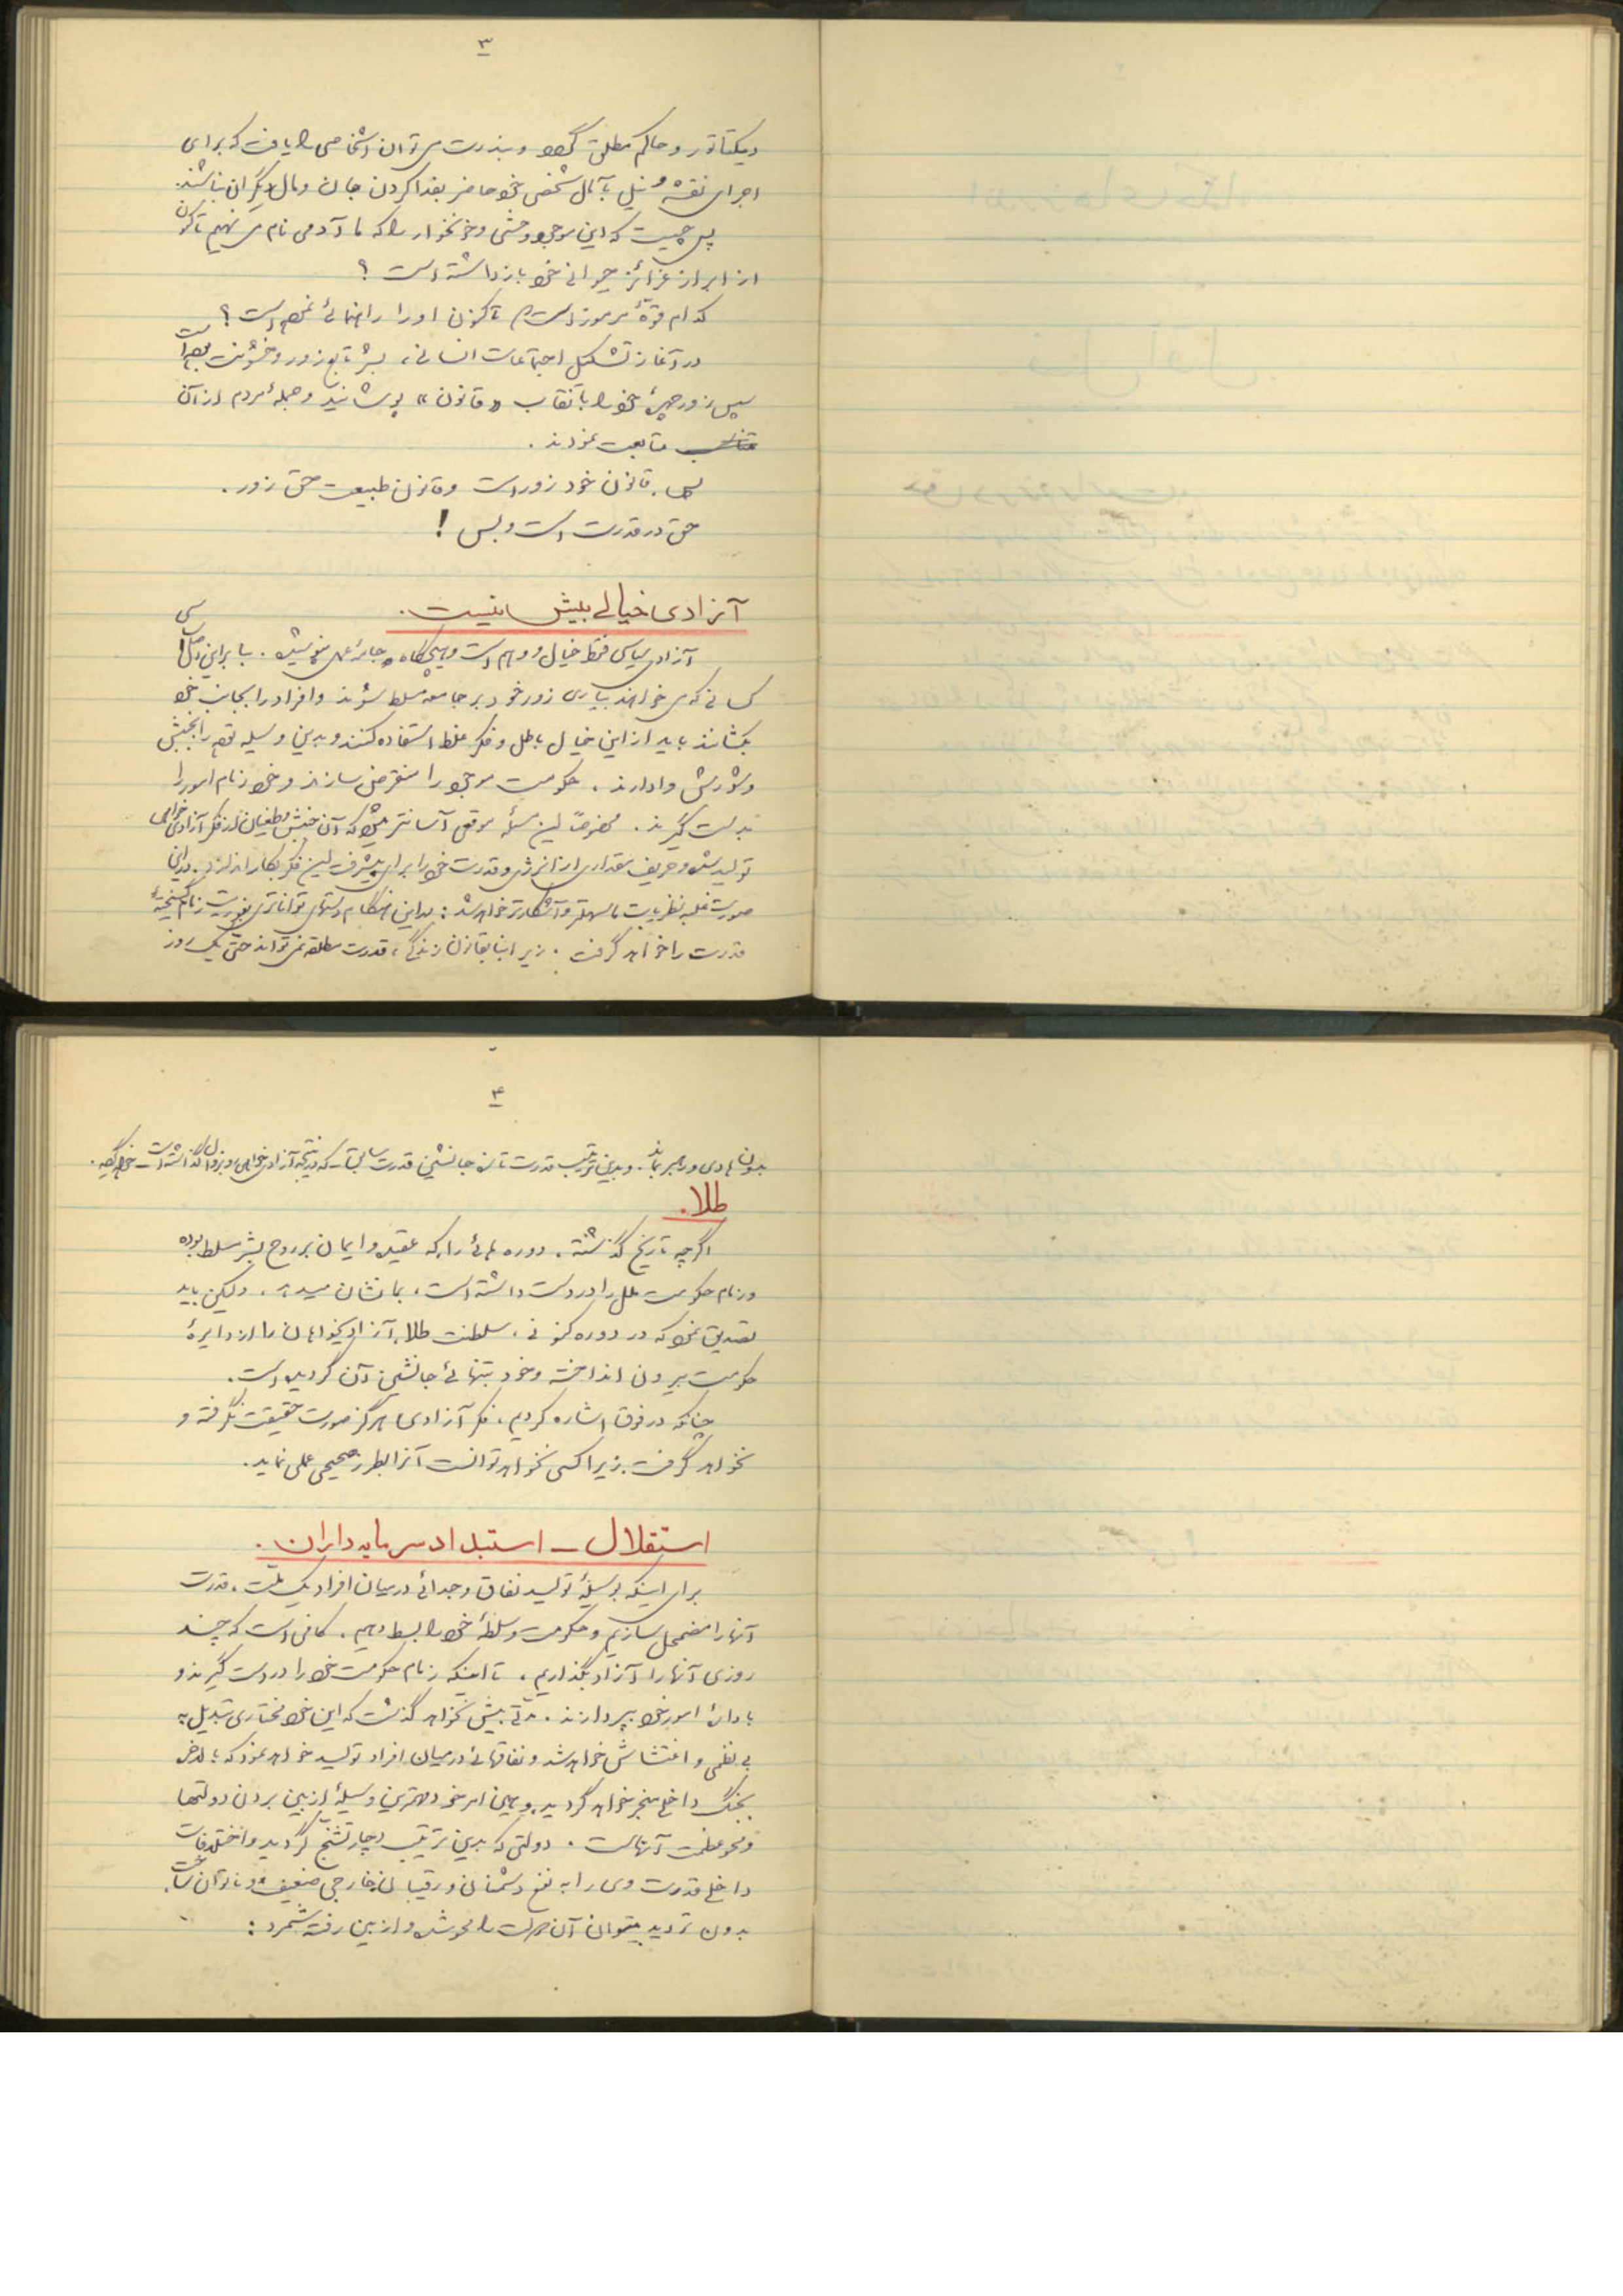 ۳
دیکتاتور و حاکم مطلق گردد و بندرت می توان اشخاصی را یافت که برای
اجرای نقشه و نیل بآمال شخصی خود حاضر بفدا کردن جان و مال دیگران نباشند.
پس چیست که این موجود وحشی و خونخوار را که ما آدمی نام می نهیم تاکنون
از ابراز غرائز حیوانی خود باز داشته است ؟
کدام قوهٔ مرموز است که تاکنون او را راهنمائی نموده است ؟
در آغاز تشکیل اجتماعات انسانی، بشر تابع زور و خشونت بوده است
سپس زور چهرهٔ خود را با نقاب «قانون» پوشانید و جملهٔ مردم از آن
متابعت نمودند .
پس، قانون خود زور است و قانون طبیعت حق زور .
حق در قدرت است و بس !
آزادی خیالی بیش نیست .
آزادی سیاسی فقط خیال و وهم است و هیچگاه جامهٔ عمل نمی پوشد . بنا براین اصل اساسی
کسانی که می خواهند بیاری زور خود بر جامعه مسلط شوند و افراد را بجانب خود
بکشانند باید از این خیال باطل و فکر غلط استفاده کنند و بدین وسیله توده را بجنبش
و شورش وادارند . حکومت موجود را منقرض سازند و خود زمام امور را
بدست گیرند . مخصوصاً این مسئله موقعی آسانتر میشود که آن جنبش و طغیان از فکر آزادی خواهی
تولید شده و حریف مقداری از انرژی و قدرت خود را برای پیشرفت این فکر بکار اندازد . در این
صورت غلبه نظریات ما سهلتر و آشکارتر خواهد شد : در این هنگام دستهای تواناتری بفوریت زمام گسیختهٔ
قدرت را خواهد گرفت . زیرا بنا بقانون زندگی، قدرت مطلقه نمی تواند حتی یک روز
۴
بدون هادی و رهبر بماند . و بدین ترتیب قدرت تازه جانشین قدرت سابق که در نتیجه آزادی خواهی رو بزوال گذاشته است خواهد گردید .
طلا .
اگرچه تاریخ گذشته، دوره هائی را، که عقیده و ایمان بر روح بشر مسلط بوده
و زمام حکومت ملل را در دست داشته است، بما نشان میدهد . ولیکن باید
تصدیق نمود که در دوره کنونی، سلطنت طلا، آزادیخواهان را از دایرهٔ
حکومت بیرون انداخته و خود بتنهائی جانشین آن گردیده است .
چنانکه در فوق اشاره کردیم، فکر آزادی هرگز صورت حقیقت نگرفته و
نخواهد گرفت . زیرا کسی نخواهد توانست آنرا بطرز صحیحی عملی نماید .
استقلال – استبداد سرمایه داران .
برای اینکه بوسیلهٔ تولید نفاق و جدائی در میان افراد یک ملت، قدرت
آنها را مضمحل سازیم و حکومت و سلطهٔ خود را بسط دهیم . کافی است که چند
روزی آنها را آزاد بگذاریم، تا اینکه زمام حکومت خود را در دست گیرند و
با ادارهٔ امور خود بپردازند . مدتی بیش نخواهد گذشت که این خود مختاری تبدیل به
بی نظمی و اغتشاش خواهد شد و نفاقهائی در میان افراد تولید خواهد نمود که بالاخره
بجنگ داخلی منجر خواهد گردید، و همین امر خود مهمترین وسیلهٔ از بین بردن دولتها
و محو عظمت آنهاست . دولتی که بدین ترتیب دچار تشنج گردید و اختلافات
داخلی قدرت وی را به نفع دشمنان و رقیبان خارجی ضعیف و ناتوان ساخت
بدون تردید میتوان آن دولت را محو شده و از بین رفته شمرد :